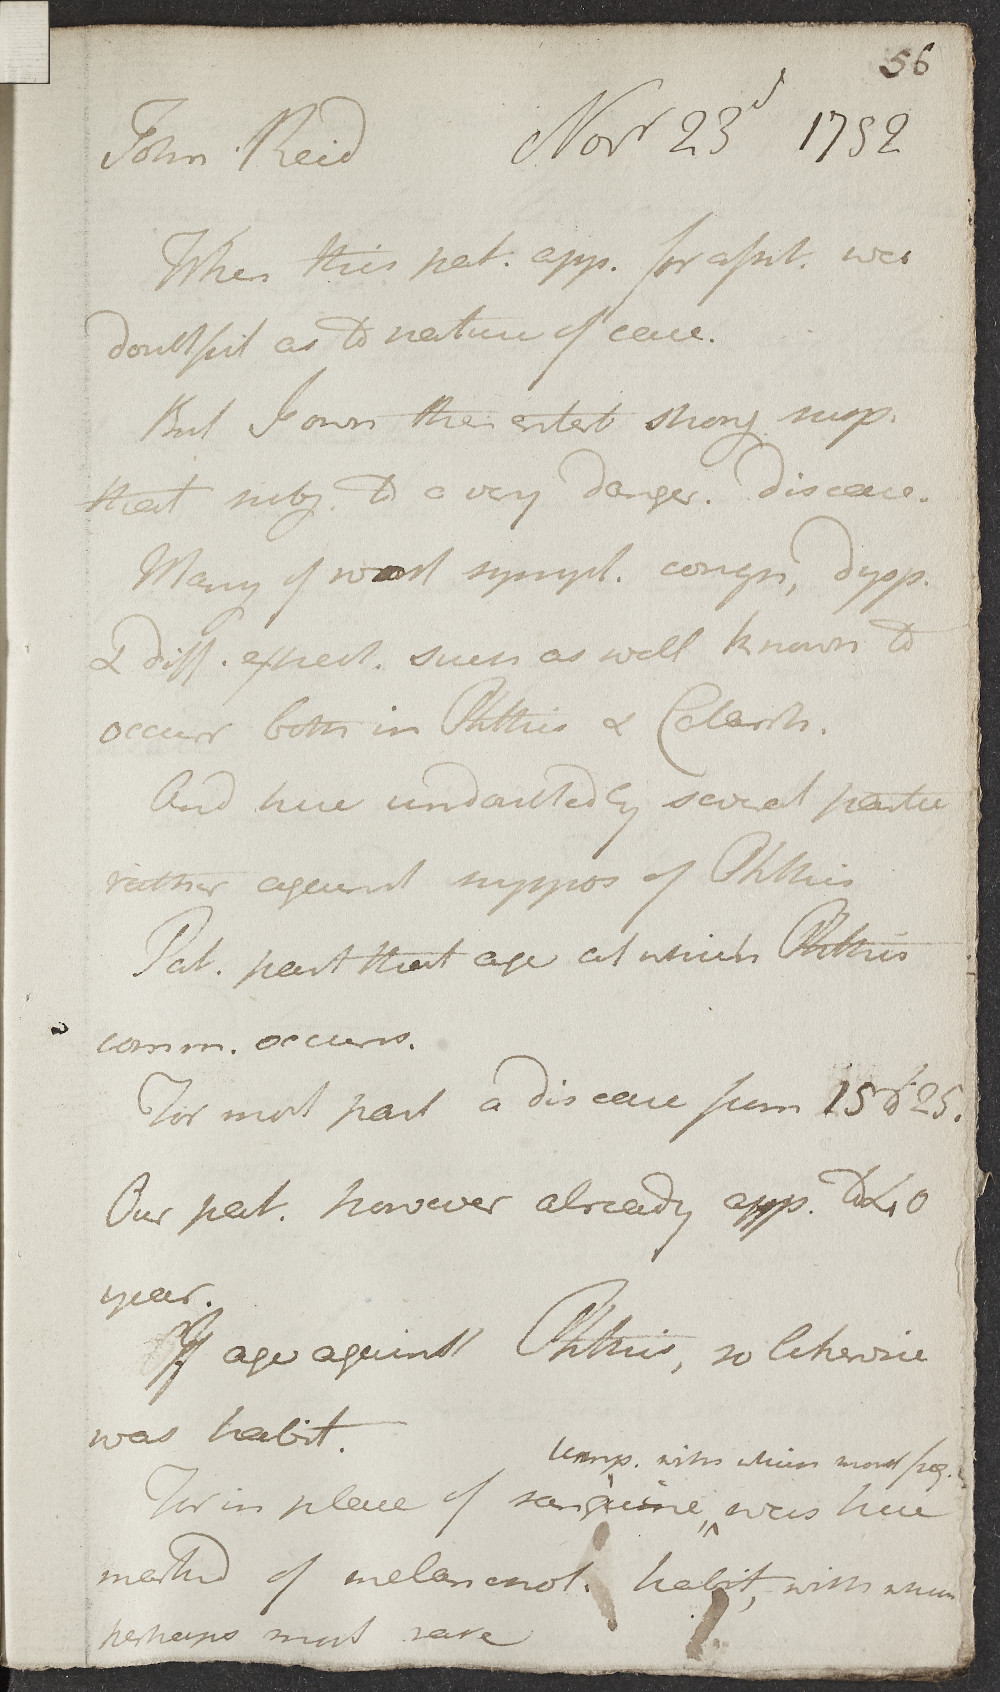 56
John Reid Novr 23d 1782
When this pat. app. for assist. was
doubtful as to nature of case.
But I own then entert strong susp.
that subj. to a very danger. disease.
Many of worst sympt. cough, dysp.
& diff. expect. such as well known to
occurr both in Phthis & Catarrh.
And here undoubtedly several partic
rather against suppos of Phthis
Pat. past that age at which Phthis
comm. occurs.
For most part a disease from 15 to 25.
Our pat. however already app. to 40
year.
If age against Phthis, so likewise
was habit.
temp. with which most freq.
For in place of sanguine, ^ was here
marked of melanchol. habit, with whom
perhaps most rare